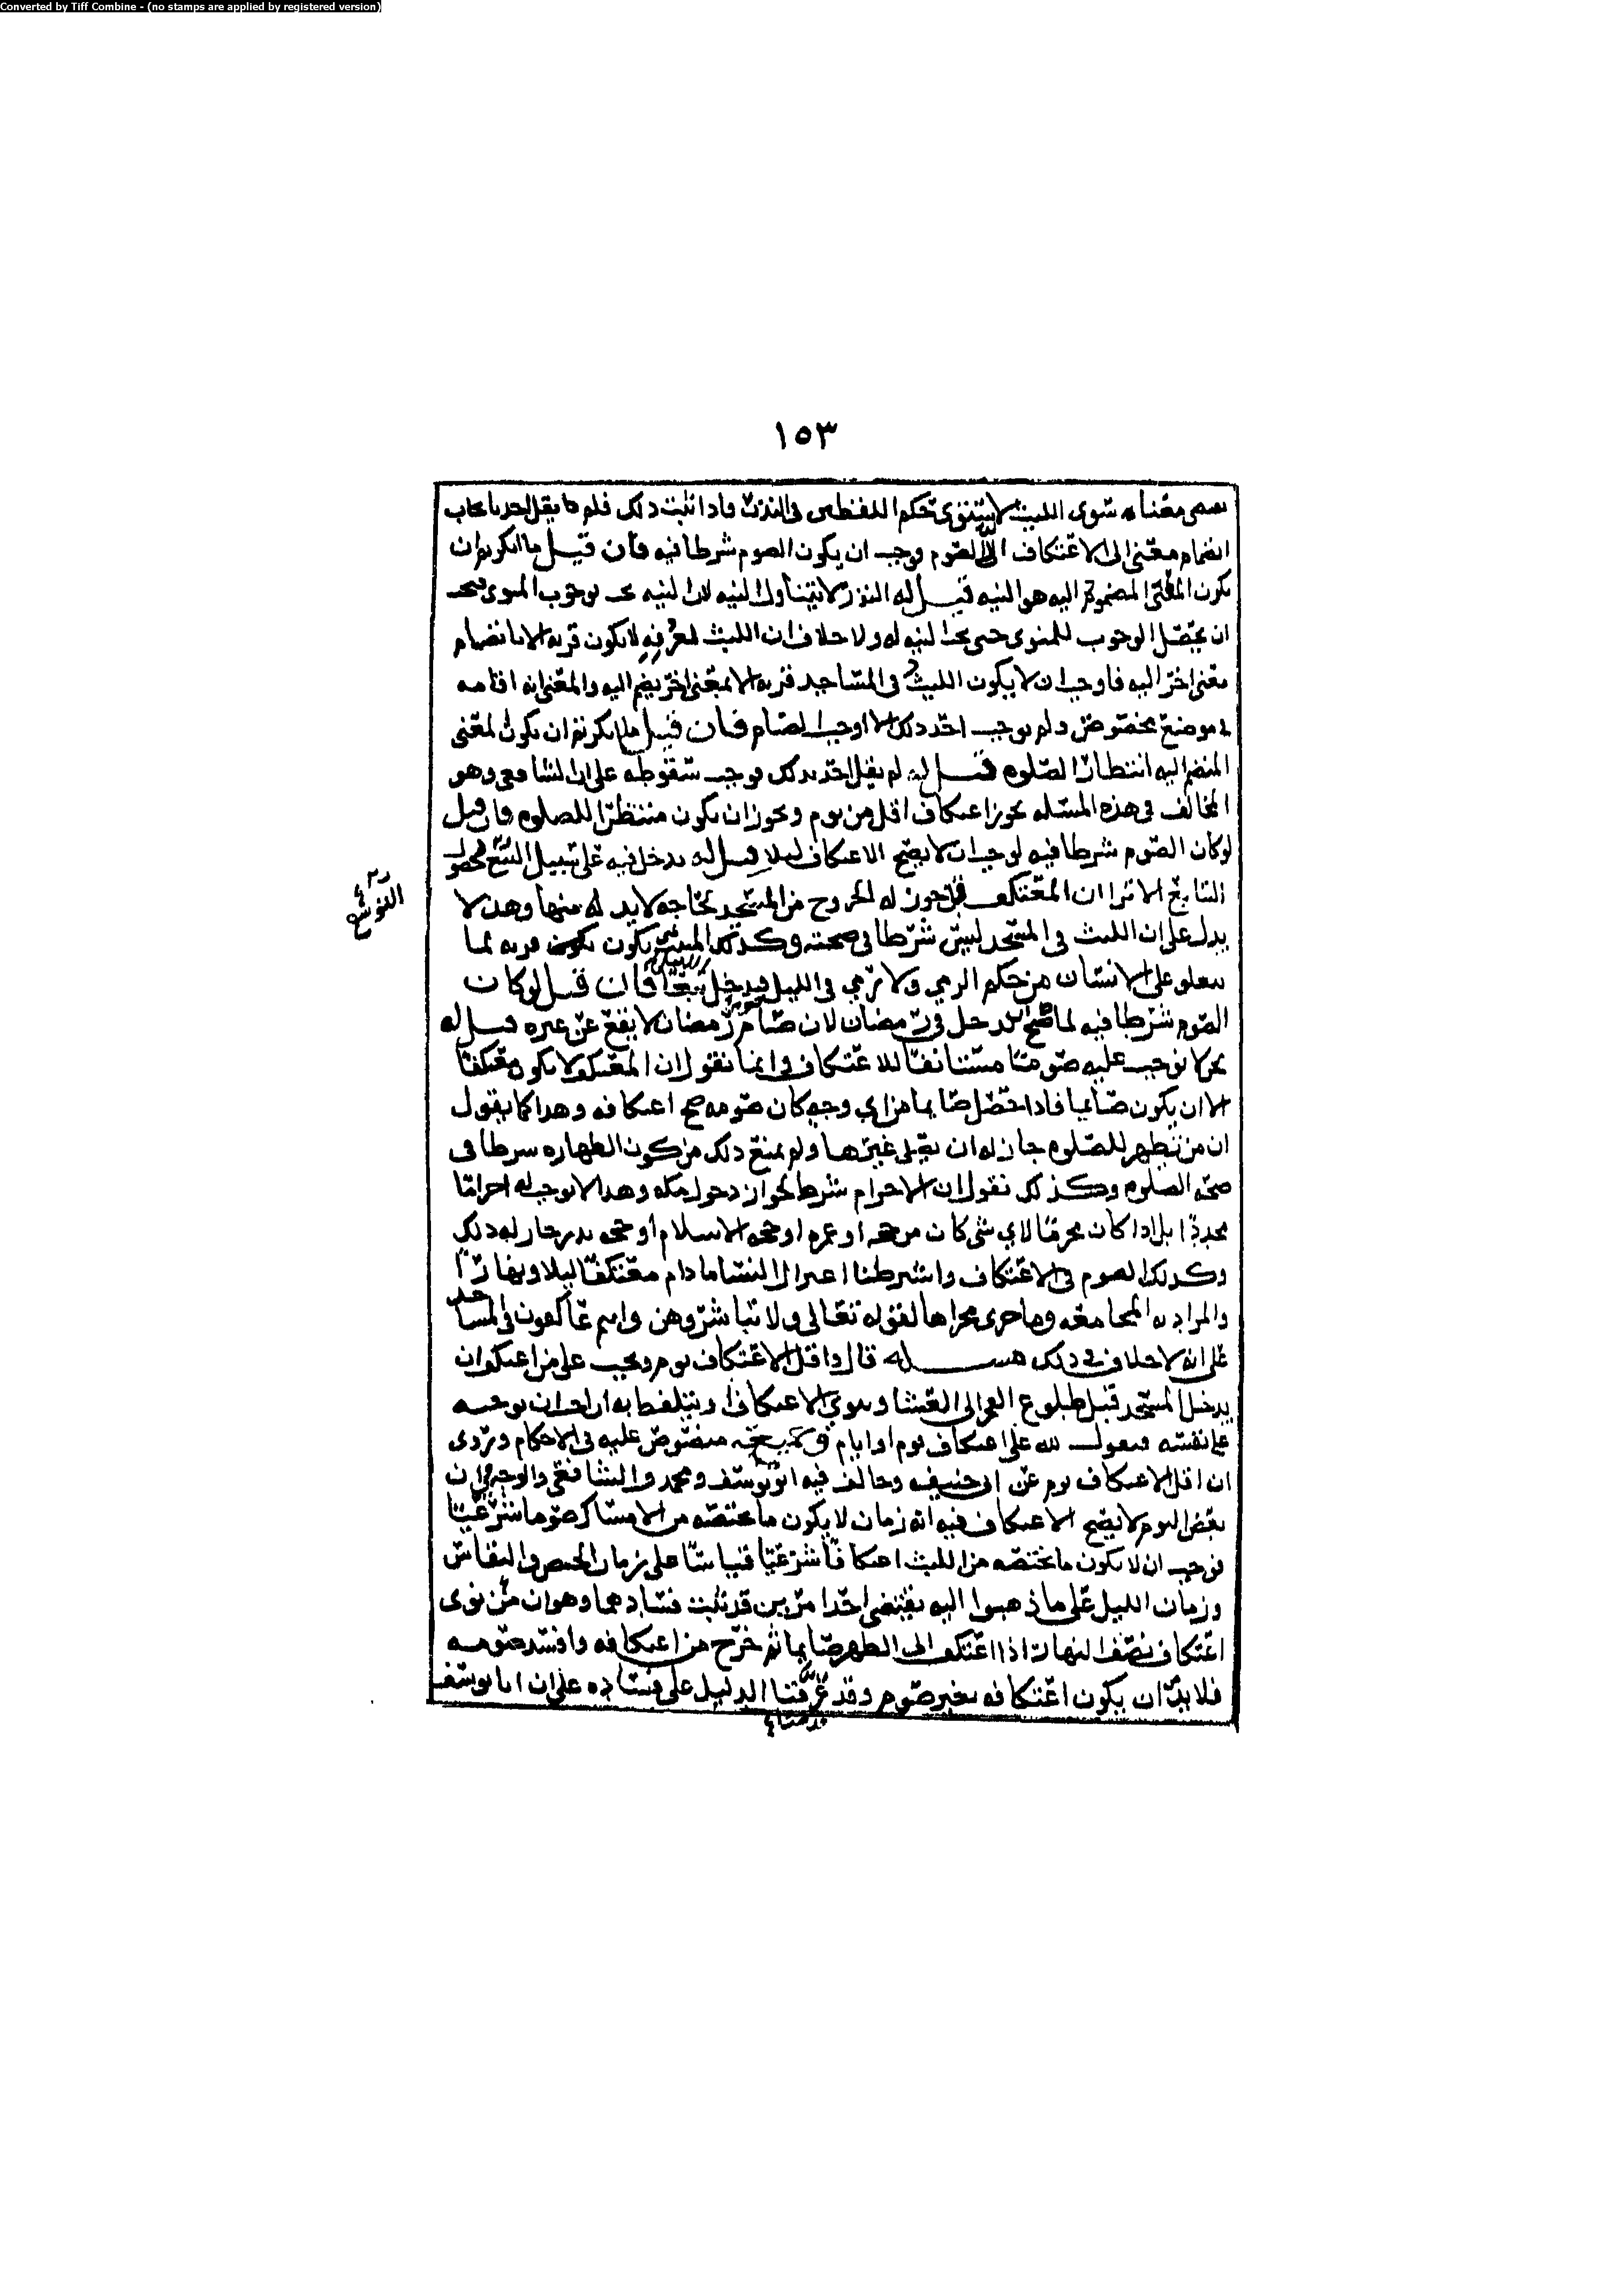 Converted by Tiff Combine - (no stamps are applied by registered version)
١٥٣
معنىاه سوى اللبث لاستوى حكم اللفظين في النذر فاذا ثبت ذلك فلم يقل احد بايجاب
انضمام معنى الى الاعتكاف الا الصوم وجب ان يكون الصوم شرطا فيه فان قيل ما انكرتم ان
يكون المعنى المضموم اليه هو النيه قيل له النذر لا يتناول النيه لان النيه تجب بوجوب المنوى فيجب
ان يحصل الوجوب للمنوى حتى يجب النيه له ولا خلاف ان اللبث لا يكون قربه الا بانضمام
معنى اخر اليه فاوجب ان لا يكون اللبث في المساجد قربه الا لمعنى اخر يضم اليه والمعنى انه اقامه
في موضع مخصوص ولم يوجب احد ذلك الا اوجب الصيام فان قيل ما انكرتم ان يكون المعنى
المنضم اليه انتظار الصلوه قيل له لم يقل احد بذلك فوجب سقوطه على ان الشافعي وهو
المخالف في هذه المسله يجوز اعتكاف اقل من يوم ويجوز ان يكون منتظرا للصلوه فان قيل
لو كان الصوم شرطا فيه لوجب ان لا يصح الاعتكاف ليلا قيل له يدخل فيه على سبيل التبع
التابع الا ترا ان المعتكف قد يجوز له الخروج من المسجد لحاجه لا بد له منها وهذا لا
يدل على ان اللبث في المسجد ليس شرطا في صحته وكذلك المبيت بمنى يكون قربه لما
يتعلق على الانسان من حكم الرمي ولا رمي في الليل فيدخل تبعا فان قيل لو كان
الصوم شرطا فيه لما صح في رمضان لان صيام رمضان لا يقع عن غيره قيل له
نحن لا نوجب عليه صوما مستانفا للاعتكاف وانما نقول ان المعتكف لا يكون معتكفا
الا ان يكون صايما فاذا حصل صايما من اي وجه كان صومه صح اعتكافه وهذا كما يقول
ان من تطهر للصلوه جاز له ان يصلي غيرها ولم يمنع ذلك من كون الطهاره شرطا في
صحه الصلوه وكذلك نقول ان الاحرام شرط لجواز دخول مكه وهذا لا يوجب له احراما
مجددا بل اذا كان محرما لاي شى كان من حجه او عمره او حجه الاسلام او حجه نذر جاز له ذلك
وكذلك الصوم في الاعتكاف واشترطنا اعتزال النسا ما دام معتكفا ليلا ونهارا
والمراد به المجامعه وما جرى مجراها لقوله تعالى ولا تباشروهن وانتم عاكفون في المساجد
على انه لا خلاف في ذلك مسـله قال واقل الاعتكاف يوم ويجب على من اعتكف ان
يدخل المسجد قبل طلوع الفجر الى العشا وينوي الاعتكاف ويتلفظ به ان احب ان يوجبه
على نفسه فيقول لله علي اعتكاف يوم او ايام منصوص عليه في الاحكام وروى
ان اقل الاعتكاف يوم عن ابي حنيفه وخالف فيه ابو يوسف ومحمد والشافعي والوجه ان
بعض اليوم لا يصح الاعتكاف فيه انه زمان لا يكون ما يختصه من الامساك صوما شرعيا
فوجب ان لا يكون ما يختصه من اللبث اعتكافا شرعيا قياسا على زمان الحيض والنفاس
وزمان الليل على ما ذهبوا اليه يقتضي احد امرين قد ثبت فسادهما وهو ان من نوى
اعتكاف نصف النهار اذا اعتكف الى الظهر صايما ثم خرج من اعتكافه وافسد صومه
فلا بد ان يكون اعتكافه بغير صوم وقد عرفنا الدليل على فساده على ان ابا يوسف